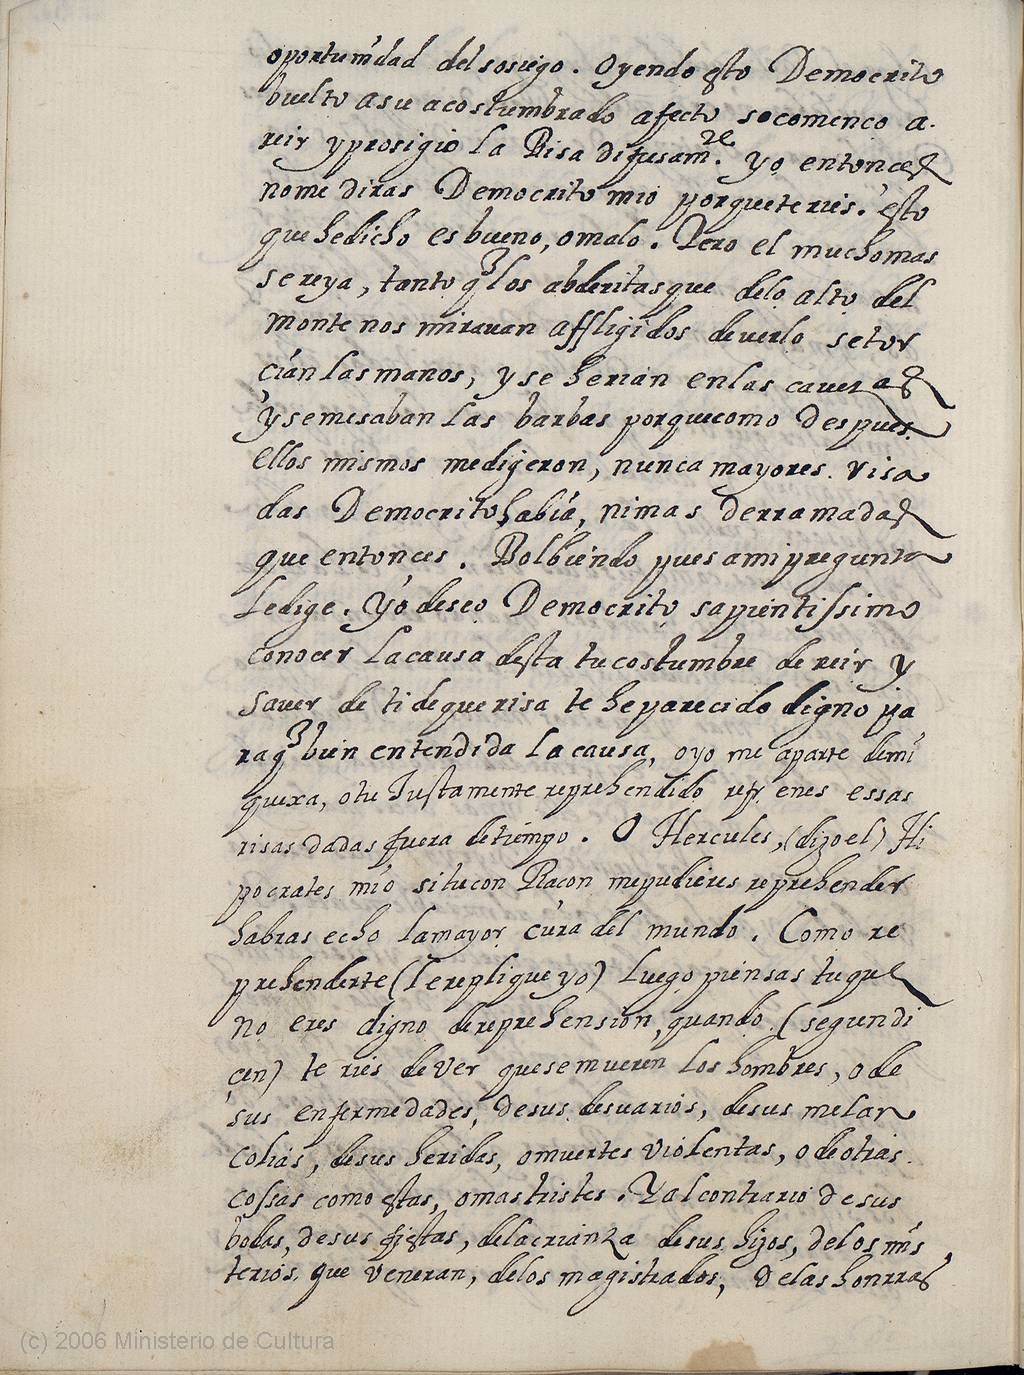 oportunidad del sosiego. Oyendo esto Democrito
buelto asu acostumbrado afecto socomenco a.
reir yprosigio la Risa difusamte. yo entonces
nome diras Democrito mio porqueteries. esto
que hedicho es bueno, omalo. Pero el muchomas
sereya, tanto q los abderitasque delo alto del
monte nos miravan affligidos deverlo setor
cian lasmanos, yse herian enlas caveras
ysemesaban las barbas porquecomo despues
ellos mismos medigeron, nunca mayores risa
das Democrito habia, nimas derramadas
que entonces. Bolbiendo pues amipregunta
Ledige. Yo deseo Democrito sapientissimo
conocer lacausa desta tucostumbre dereir y
saver de ti dequerisa te heparecido digno pa
raq bien entendida lacausa, oyo me aparte demi
quexa, otu Justamente reprehendido refrenes essas
risas dadas fuera detiempo. O Hercules, (dizoel) Hi
pocrates mio situcon Racon mepudieres reprehender
habras echo lamayor cura del mundo. Como re
prehenderte (lerepliqueyo) Luego piensas tuque
no eres digno dereprehension, quando (segundi
cen) te ries dever quesemueren los hombres, ode
sus enfermedades, desus desvarios, desus melan
colias, desus heridas, omuertes violentas, odeotras
cossas como estas, omastristes. Yalcontrario desus
bodas, desus fiestas, delacrianza desus hijos, delosmis
terios que veneran, delos magistrados, delashonrras
(c) 2006 Ministerio de Cultura